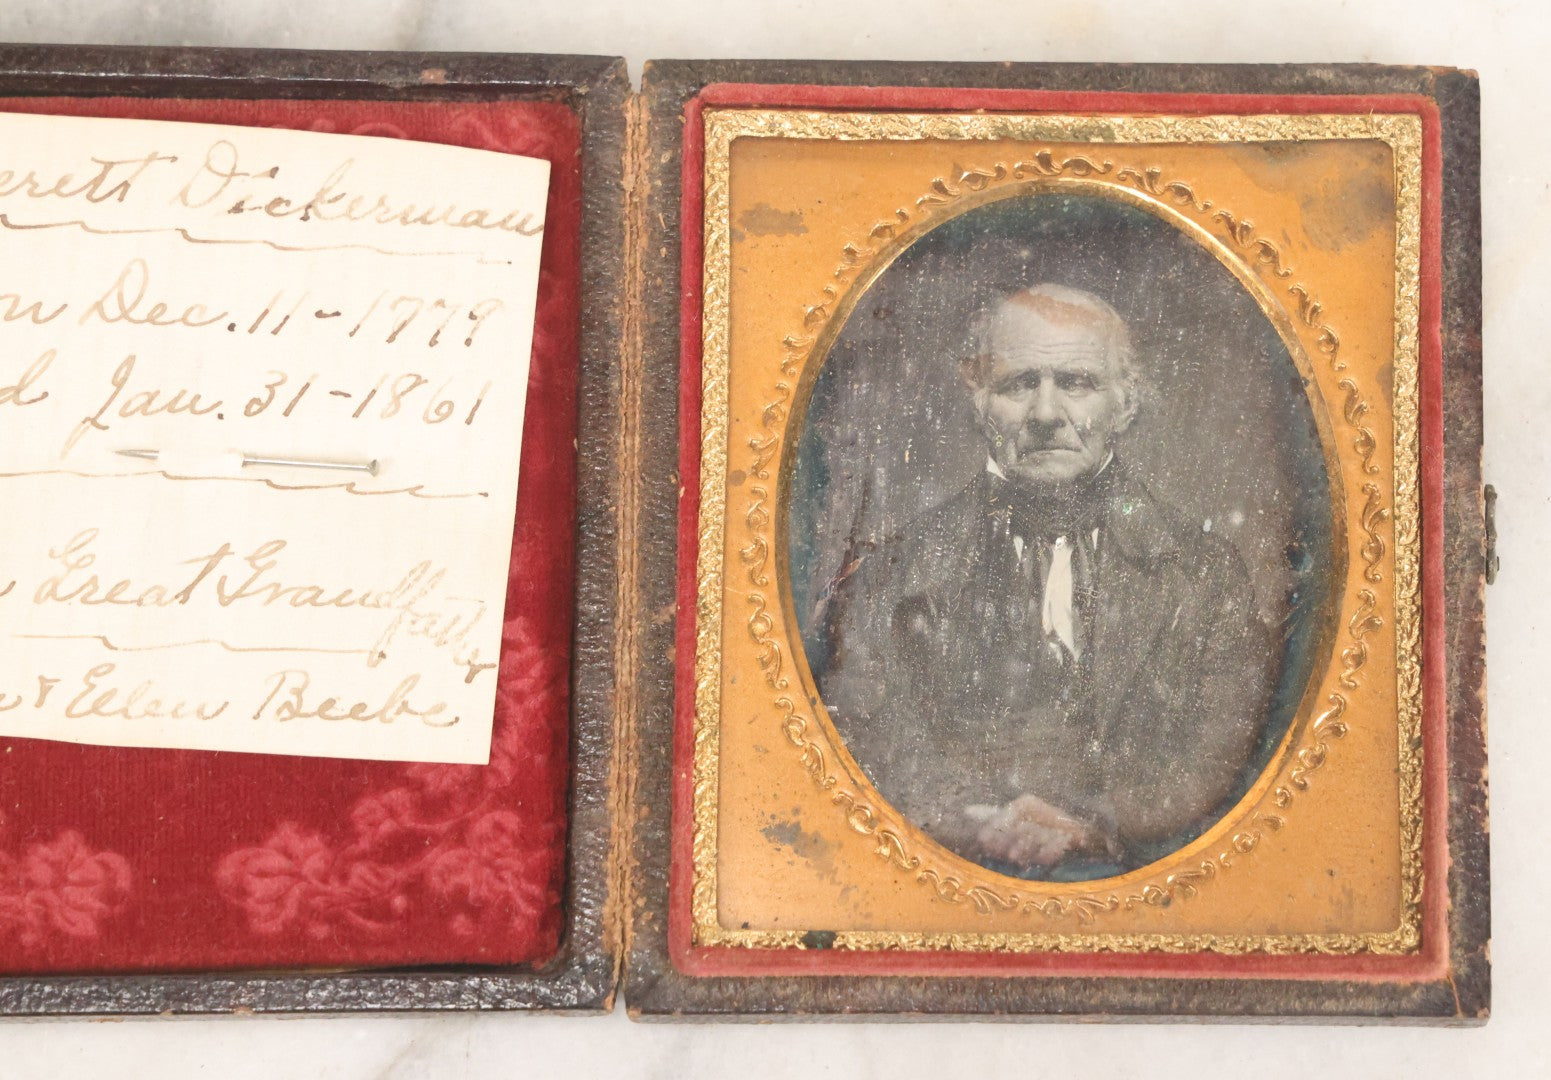 erett Dickerman
n Dec. 11 - 1779
d Jan. 31 - 1861
Great Grandfather
& Ellen Beebe